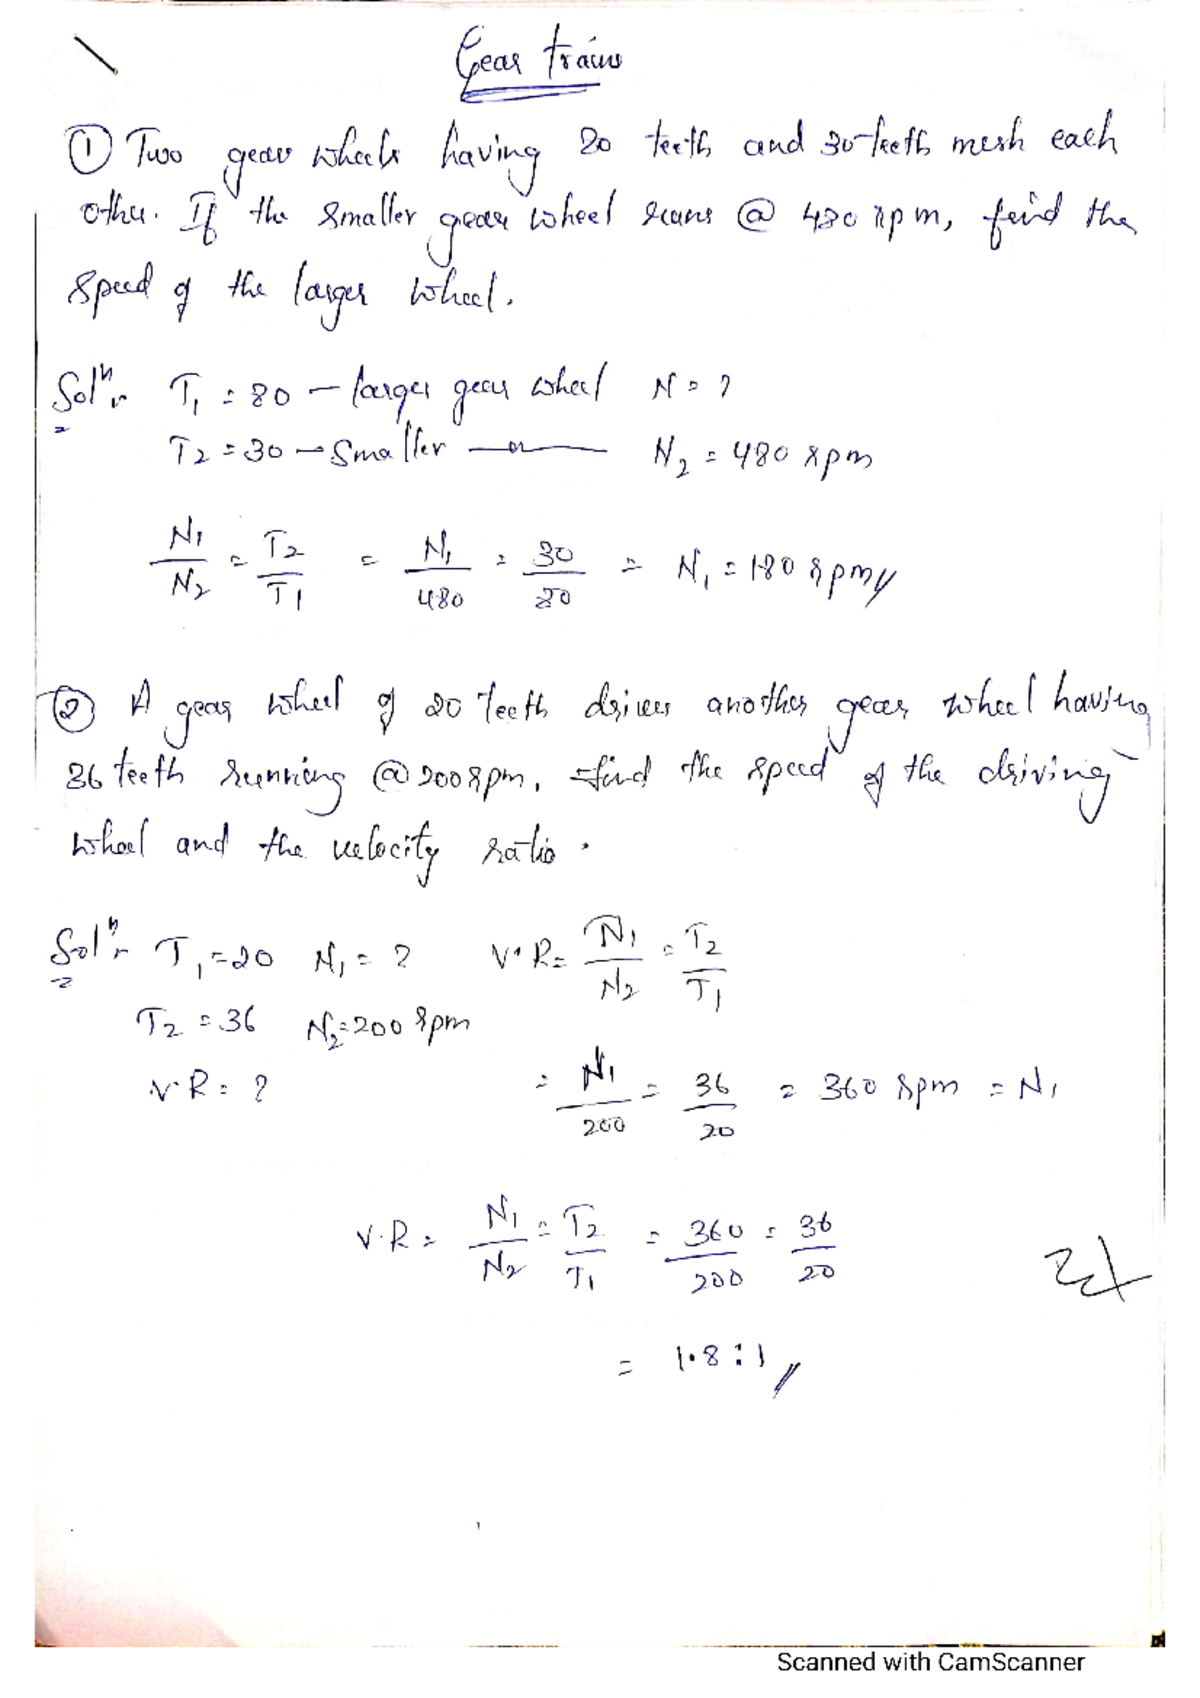 Gear trains
① Two gear wheels having 80 teeth and 30 teeth mesh each
other. If the smaller gear wheel runs @ 480 rpm, find the
speed of the larger wheel.
Solⁿ:- T₁ = 80 – larger gear wheel N = ?
T₂ = 30 – Smaller —〃— N₂ = 480 rpm
N₁/N₂ = T₂/T₁ = N₁/480 = 30/80 = N₁ = 180 rpm//
② A gear wheel of 20 teeth drives another gear wheel having
36 teeth running @ 200 rpm, find the speed of the driving
wheel and the velocity ratio.
Solⁿ:- T₁ = 20 N₁ = ? V.R = N₁/N₂ = T₂/T₁
T₂ = 36 N₂ = 200 rpm
V.R = ? = N₁/200 = 36/20 = 360 rpm = N₁
V.R = N₁/N₂ = T₂/T₁ = 360/200 = 36/20
= 1.8:1//
Scanned with CamScanner